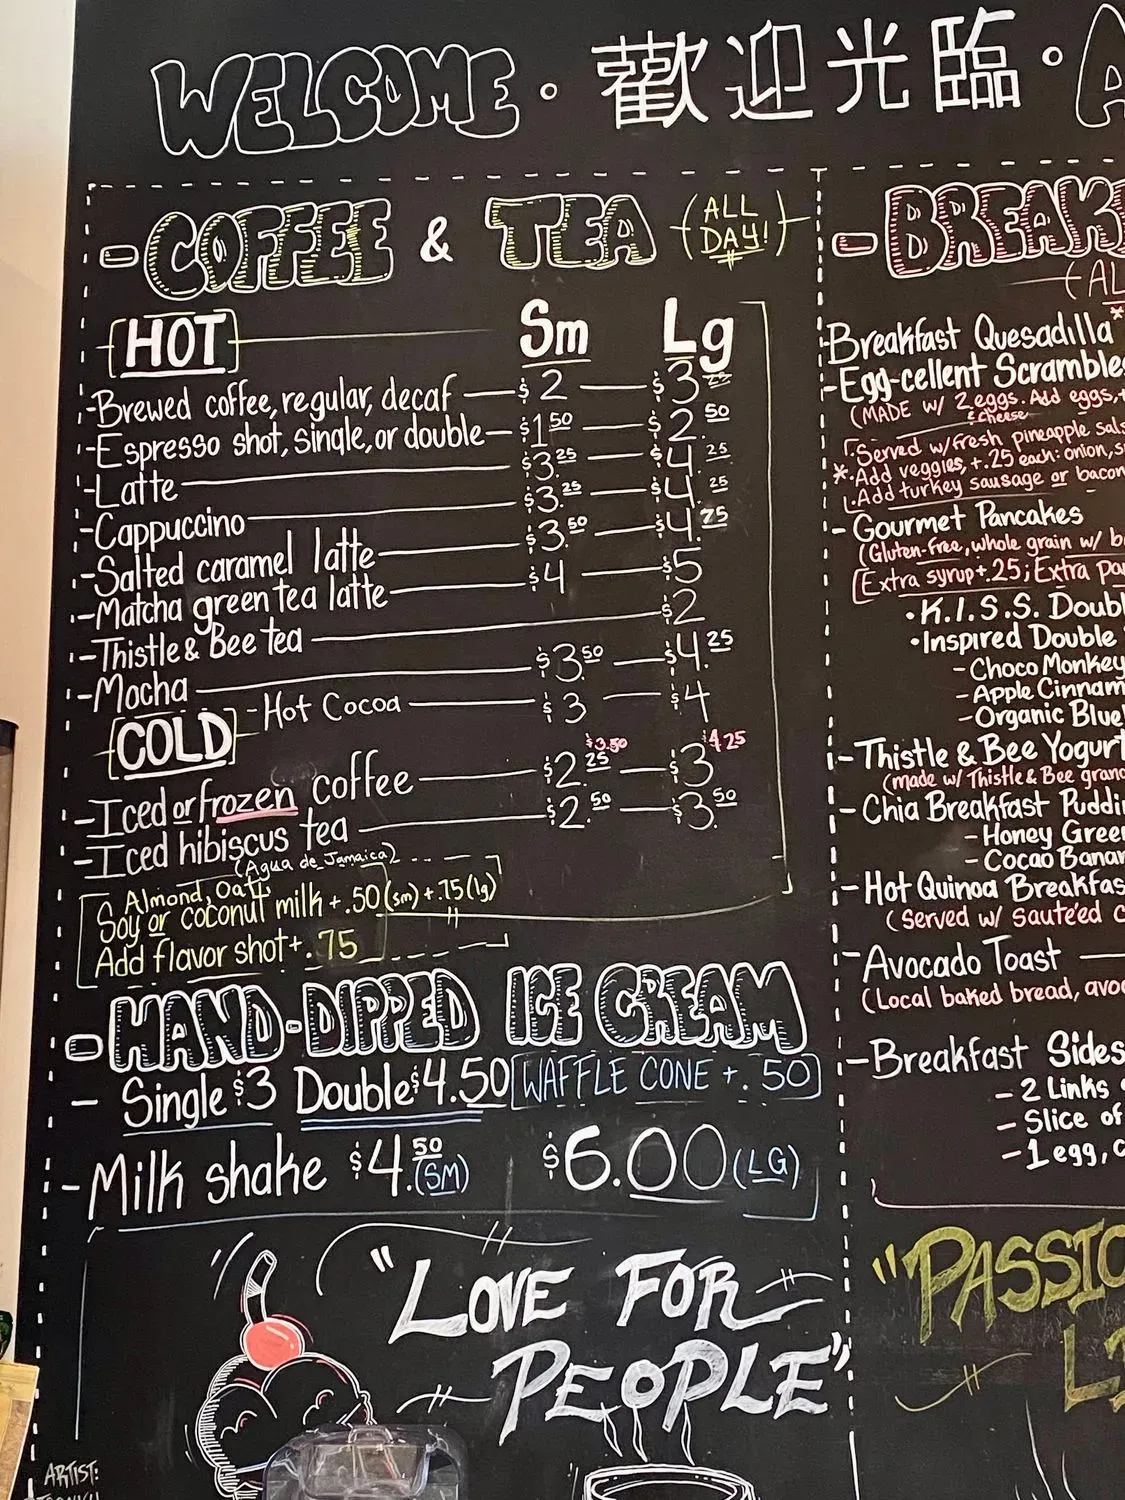 WELCOME · 歡迎光臨 ·
COFFEE & TEA (ALL DAY!)
HOT Sm Lg
-Brewed coffee, regular, decaf $2 $3.25
-Espresso shot, single, or double $1.50 $2.50
-Latte $3.25 $4.25
-Cappuccino $3.25 $4.25
-Salted caramel latte $3.50 $4.75
-Matcha green tea latte $4 $5
-Thistle & Bee tea $2
-Mocha $3.50 $4.25
-Hot Cocoa $3 $4
COLD
$3.50 $4.25
-Iced or frozen coffee $2.25 $3
-Iced hibiscus tea $2.50 $3.50
(Agua de Jamaica)
Almond, Oat,
Soy or coconut milk +.50 (sm) +.75 (lg)
Add flavor shot +.75
-HAND-DIPPED ICE CREAM
- Single $3 Double $4.50 WAFFLE CONE +.50
-Milk shake $4.50 (SM) $6.00 (LG)
"LOVE FOR
PEOPLE"
ARTIST:
Breakfast Quesadilla*
-Egg-cellent Scramble
(MADE w/ 2 eggs. Add eggs,
& cheese
Served w/ fresh pineapple
*Add veggies, +.25 each: onion,
Add turkey sausage or bacon
-Gourmet Pancakes
(Gluten-free, whole grain w/
Extra syrup +.25; Extra
·K.I.S.S.
·Inspired Double
-Choco Monkey
-Apple
-Organic
-Thistle & Bee Yogurt
(made w/ Thistle & Bee
-Chia Breakfast
-Honey
-Cocao
-Hot Quinoa
(Served w/ sauteéd
-Avocado Toast
(Local baked bread,
-Breakfast Sides
- 2 Links
- Slice of
- 1 egg,